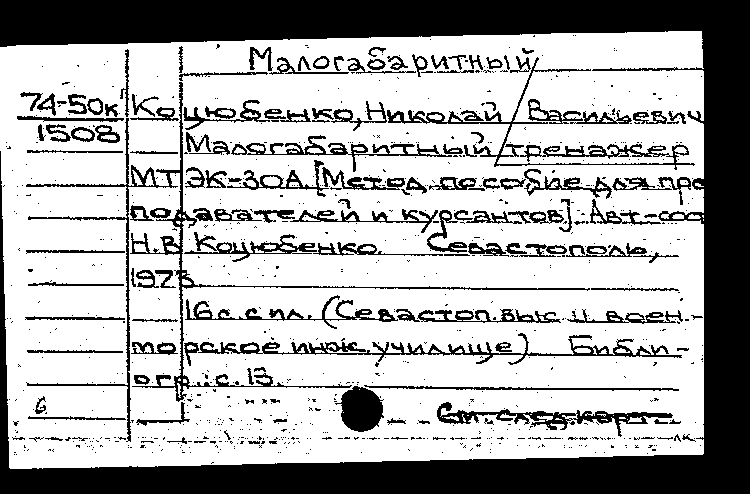 Малогабаритный
74-50к Коцюбенко, Николай Васильевич
1508 Малогабаритный тренажер
МТЭК-30А. [Метод. пособие для пре
подавателей и курсантов]. Авт.-сос
Н.В. Коцюбенко. Севастополь,
1973.
16 с. с ил. (Севастоп. высш. воен.-
морское инж. училище) Библи-
огр.: с. 13.
6 См. след. карт.
ЛК